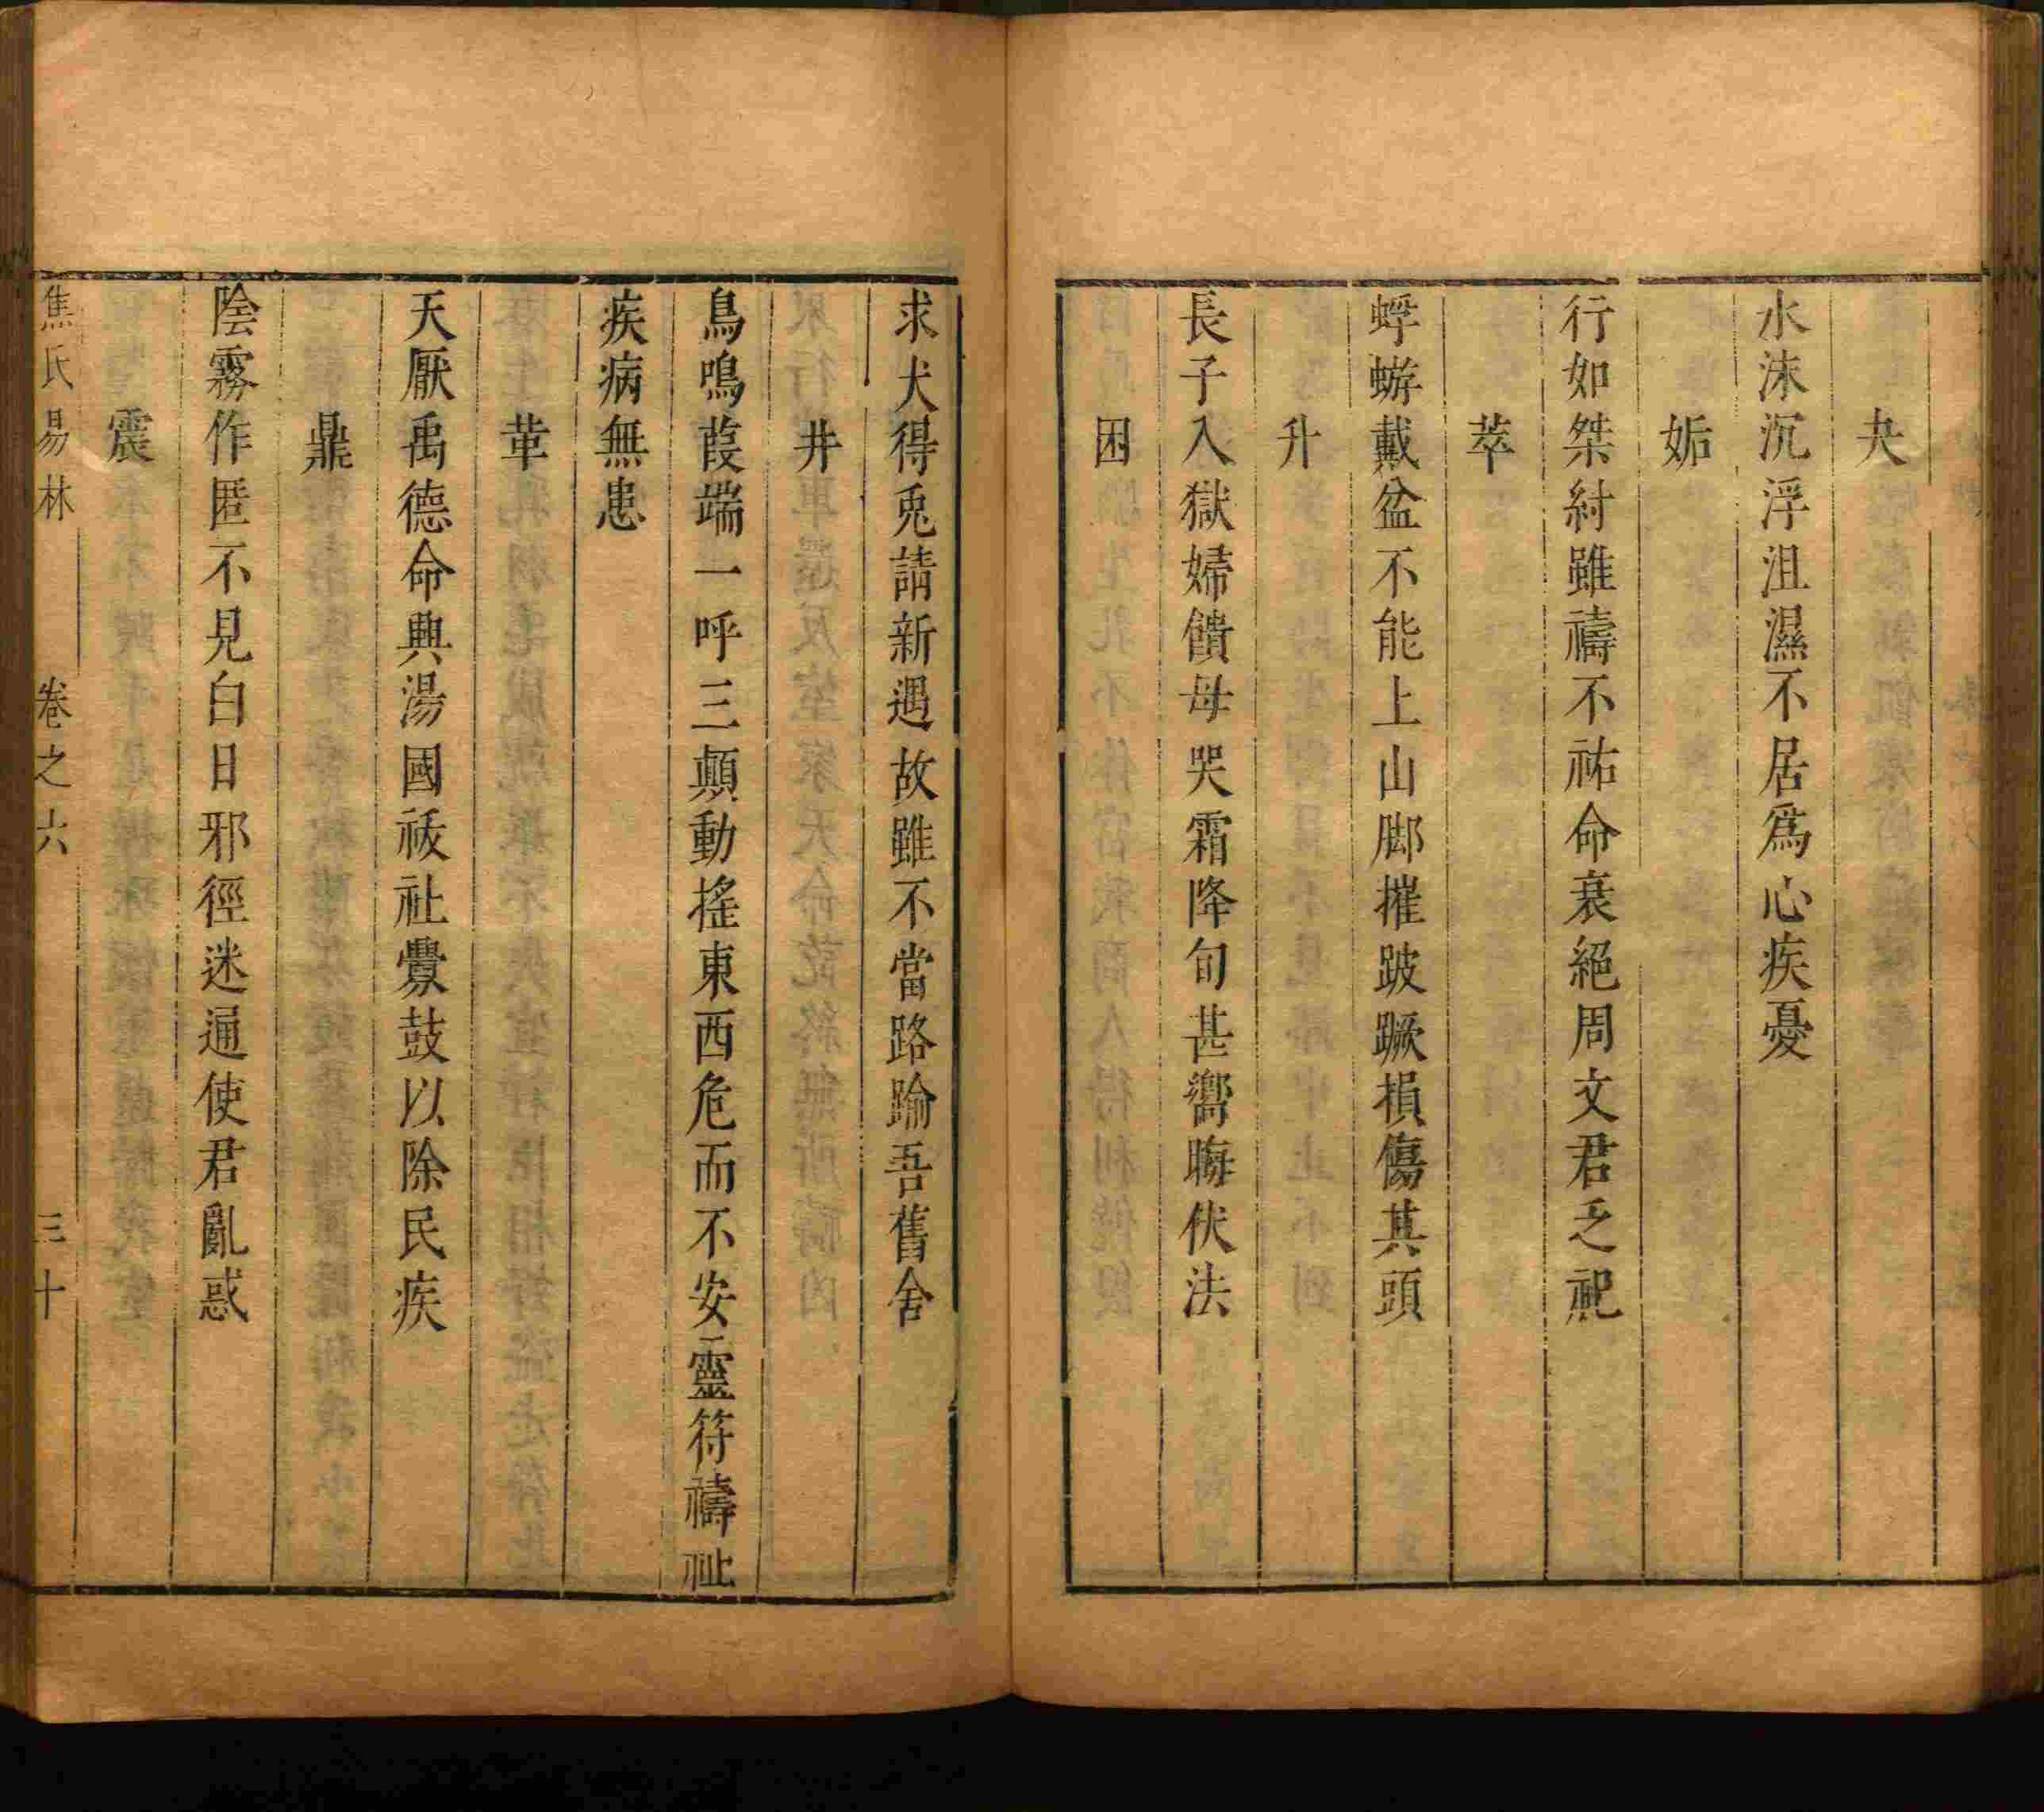 夬
水沫沉浮沮濕不居爲心疾憂
姤
行如桀紂雖禱不祐命衰絕周文君乏祀
萃
蜉蝣戴盆不能上山脚摧跛蹶損傷其頭
升
長子入獄婦饋母哭霜降旬甚嚮晦伏法
困
求犬得兎請新遇故雖不當路踰吾舊舍
井
鳥鳴葭端一呼三顛動搖東西危而不安靈符禱祉
疾病無患
革
天厭禹德命興湯國祓社釁鼓以除民疾
鼎
陰霧作匿不見白日邪徑迷通使君亂惑
震
焦氏易林 卷之六 三十